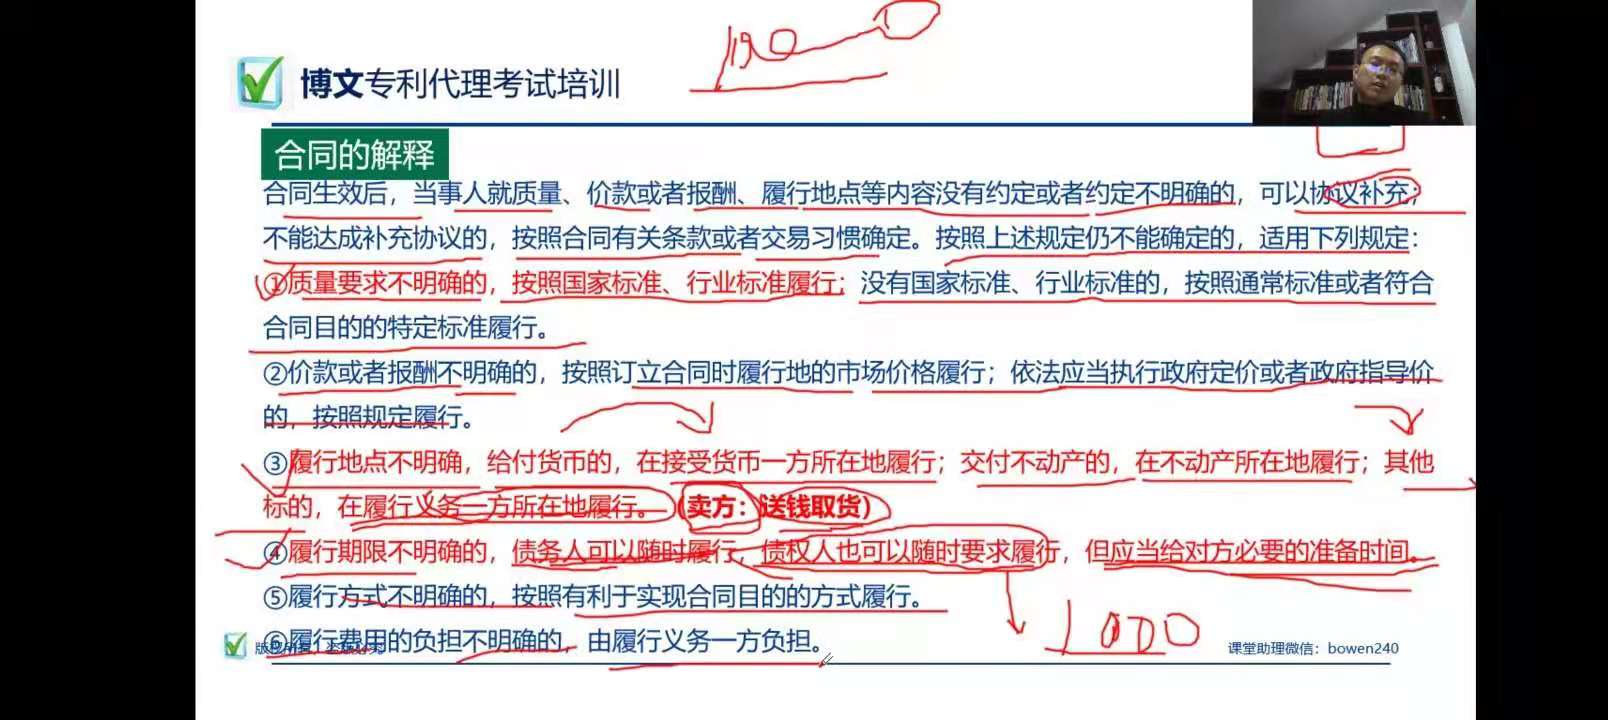 博文专利代理考试培训
合同的解释
合同生效后，当事人就质量、价款或者报酬、履行地点等内容没有约定或者约定不明确的，可以协议补充；
不能达成补充协议的，按照合同有关条款或者交易习惯确定。按照上述规定仍不能确定的，适用下列规定：
①质量要求不明确的，按照国家标准、行业标准履行；没有国家标准、行业标准的，按照通常标准或者符合
合同目的的特定标准履行。
②价款或者报酬不明确的，按照订立合同时履行地的市场价格履行；依法应当执行政府定价或者政府指导价
的，按照规定履行。
③履行地点不明确，给付货币的，在接受货币一方所在地履行；交付不动产的，在不动产所在地履行；其他
标的，在履行义务一方所在地履行。（卖方：送钱取货）
④履行期限不明确的，债务人可以随时履行，债权人也可以随时要求履行，但应当给对方必要的准备时间。
⑤履行方式不明确的，按照有利于实现合同目的的方式履行。
⑥履行费用的负担不明确的，由履行义务一方负担。
1000
版权所有，盗版必究
课堂助理微信：bowen240